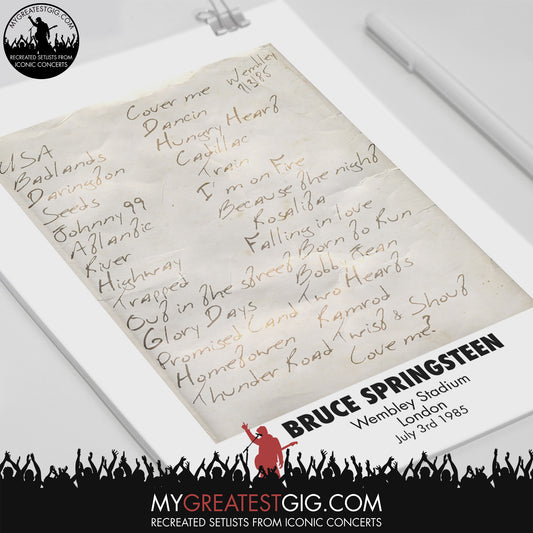 MYGREATESTGIG.COM
RECREATED SETLISTS FROM
ICONIC CONCERTS
Wembley
7/3/85
USA
Badlands
Darington
Seeds
Johnny 99
Atlantic
River
Highway
Trapped
Out in the street
Glory Days
Promised Land
Homeowen
Thunder Road
Cover me
Dancin
Hungry Heart
Cadillac
Train
I'm on Fire
Because the night
Rosalita
Falling in love
Born to Run
Bobby Jean
Two Hearts
Ramrod
Twist & Shout
Love me?
BRUCE SPRINGSTEEN
Wembley Stadium
London
July 3rd 1985
MYGREATESTGIG.COM
RECREATED SETLISTS FROM ICONIC CONCERTS